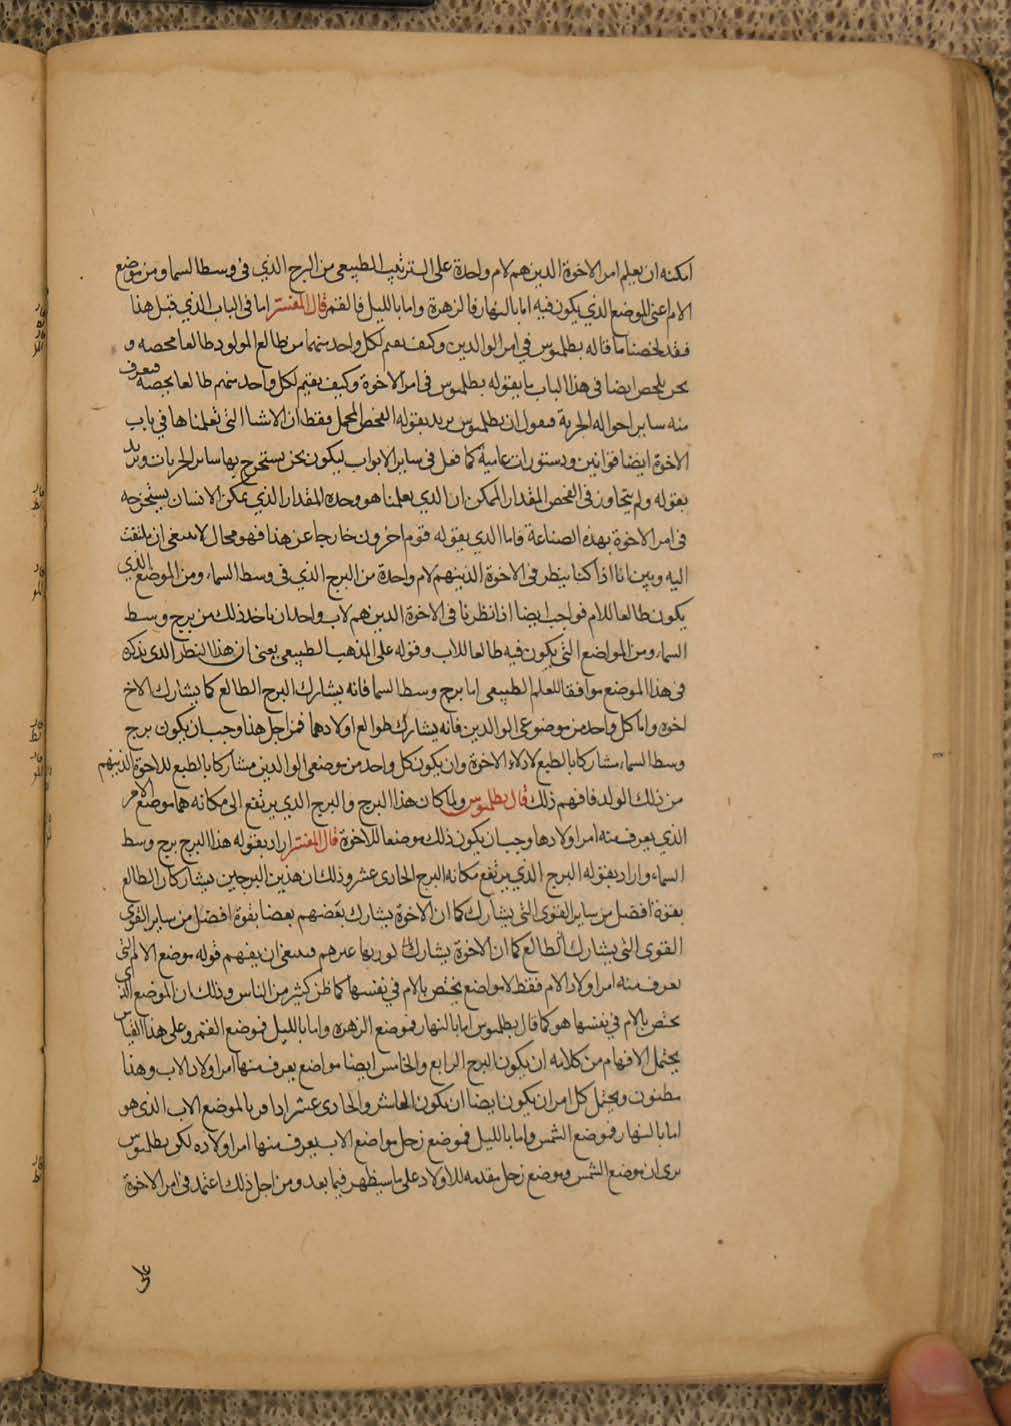 امكنه ان يعلم امر الاخوة الدين هم لام واحدة على الترتيب الطبيعى من البرج الذي فى وسط السما ومن موضع
الام اعنى الموضع الذي يكون فيه اما بالنهار فالزهرة واما بالليل فالقمر قال المفسر اما فى الباب الذي قبل هذا
فقد لخصنا ما قاله بطلميوس فى امر الوالدين وكيف نقيم لكل واحد منهما من طالع المولود طالعا محصه و
نحن نلخص ايضا فى هذا الباب ما يقوله بطلميوس فى امر الاخوة وكيف يقيم لكل واحد منهم طالعا بحصه فيعرف
منه ساير احواله الجزية فنقول ان بطلميوس يريد بقوله الفحص المجمل فقط ان الاشيا التى تعلمناها فى باب
الاخوة ايضا قوانين ودستورات عامية كما فعل فى ساير الابواب ليكون نحن نستخرج بها ساير الجزيات ويريد
بقوله ولم يتجاوز فى الفحص المقدار الممكن ان الذي يعلمنا هو وحده المقدار الذي يمكن الانسان يستخرجه
فى امر الاخوة بهذه الصناعة فاما الذي يقوله قوم اخرون خارجا عن هذا فهو محال لا ينبغى ان يلتفت
اليه وبين انا اذا كنا ننظر فى الاخوة الذينهم لام واحدة من البرج الذي فى وسط السماء ومن الموضع الذي
يكون طالعا للام فواجب ايضا اذا نظرنا فى الاخوة الدين هم لاب واحد ان ناخذ ذلك من برج وسط
السماء ومن المواضع التى يكون فيه طالعا للاب وقوله على المذهب الطبيعى يعنى ان هذا النظر الذى يذكره
فى هذا الموضع موافقا للعلم الطبيعى اما برج وسط السما فانه يشارك البرج الطالع كما يشارك الاخ
اخوه واما كل واحد من موضوعى الوالدين فانه يشارك طوالع اولادهما فمن اجل هذا وجب ان يكون برج
وسط السماء مشاركا بالطبع لادلاء الاخوة وان يكون كل واحد من موضعى الوالدين مشاركا بالطبع للاخوة الذينهم
من ذلك الوالد فافهم ذلك قال بطلميوس ولما كان هذا البرج والبرج الذي يرتفع الى مكانه هما موضع الام
الذي يعرف منه امر اولادها وجب ان يكون ذلك موضعا للاخوة قال المفسر اراد بقوله هذا البرج برج وسط
السماء واراد بقوله البرج الذي يرتفع مكانه البرج الحادى عشر وذلك ان هذين البرجين يشاركان الطالع
بقوة افضل من ساير القوى التى يشارك كما ان الاخوة يشارك بعضهم بعضا بقوة افضل من ساير القوى
القوى التى يشارك الطالع كما ان الاخوة يشارك غيرهم فينبغى ان يفهم قوله موضع الام التى
نعرف منه امر اولاد الام فقط لا مواضع يختص بالام فى نفسها كما ظن كثير من الناس وذلك ان الموضع الذي
يختص بالام فى نفسها هو كما قال بطلميوس اما بالنهار فموضع الزهره واما بالليل فموضع القمر وعلى هذا القياس
يحتمل الافهام من كلامه ان يكون البرج الرابع والخامس ايضا مواضع يعرف منها امر اولاد الاب وهذا
مظنون ويحتمل كل امر ان يكون ايضا ان يكون العاشر والحادى عشر اذا قرنا بالموضع الاب الذى هو
اما بالنهار فموضع الشمس واما بالليل فموضع زحل مواضع الاب يعرف منها امر اولاده لكن بطلميوس
يرى ان موضع الشمس وموضع زحل مقدمه للاولاد على ما سيظهر فيما بعد ومن اجل ذلك اعتمد فى امر الاخوة
على